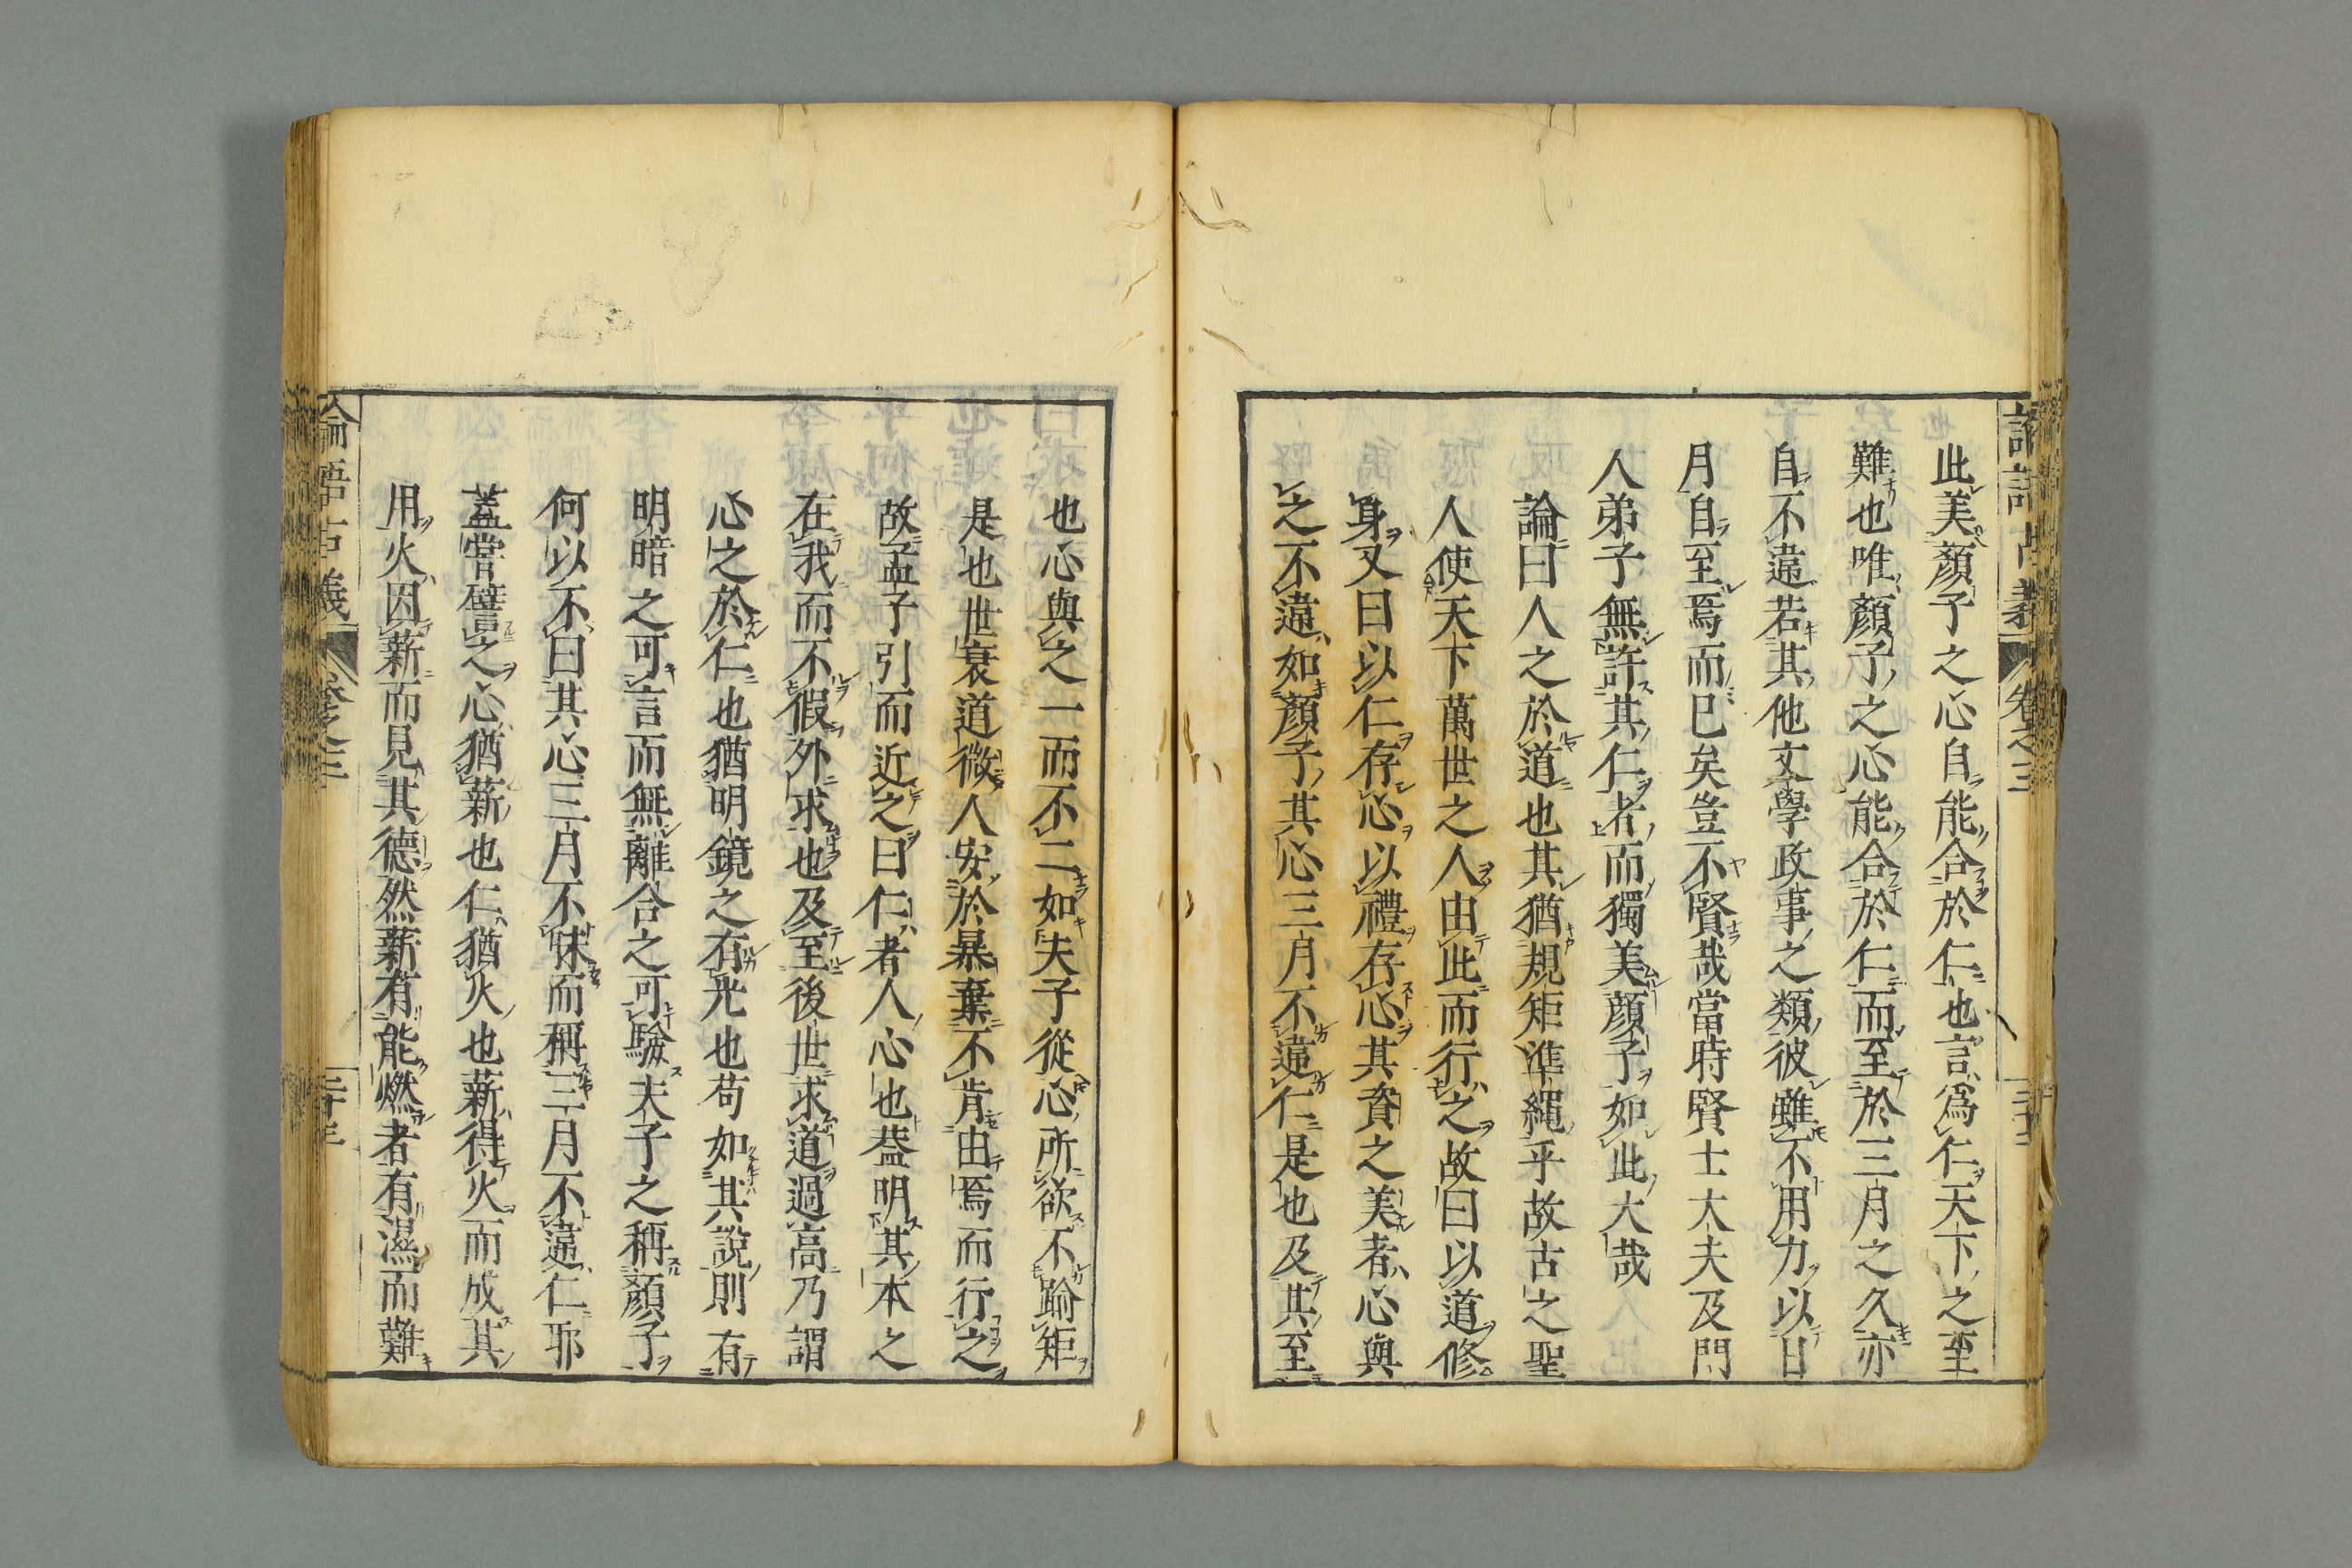 此美顏子之心自能合於仁也言爲仁天下之至
難也唯顏子之心能合於仁而至於三月之久亦
自不違若其他文學政事之類彼雖不用力以日
月自至焉而已矣豈不賢哉當時賢士大夫及門
人弟子無許其仁者而獨美顏子如此大哉
論曰人之於道也其猶規矩準繩乎故古之聖
人使天下萬世之人由此而行之故曰以道修
身又曰以仁存心以禮存心其資之美者心與
之不違如顏子其心三月不違仁是也及其至
也心與之一而不二如夫子從心所欲不踰矩
是也世衰道微人安於暴棄不肯由焉而行之
故孟子引而近之曰仁者人心也葢明其本之
在我而不假外求也及至後世求道過高乃謂
心之於仁也猶明鏡之有光也苟如其說則有
明暗之可言而無離合之可驗夫子之稱顏子
何以不曰其心三月不昧而稱三月不違仁耶
蓋嘗譬之心猶薪也仁猶火也薪得火而成其
用火因薪而見其德然薪有能燃者有濕而難
論語古義 卷之三 二十三